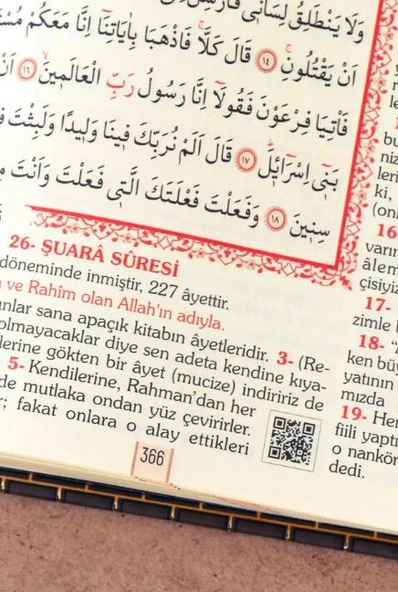 وَلَا يَنْطَلِقُ لِسَانٖى
اَنْ يَقْتُلُونِ ١٤ قَالَ كَلَّا فَاذْهَبَا بِاٰيَاتِنَٓا اِنَّا مَعَكُمْ
فَاْتِيَا فِرْعَوْنَ فَقُولَٓا اِنَّا رَسُولُ رَبِّ الْعَالَمٖينَ ١٦ اَنْ
بَنٖٓى اِسْرَٓائٖلَ ١٧ قَالَ اَلَمْ نُرَبِّكَ فٖينَا وَلٖيدًا وَلَبِثْتَ
سِنٖينَ ١٨ وَفَعَلْتَ فَعْلَتَكَ الَّتٖى فَعَلْتَ وَاَنْتَ
26- ŞUARÂ SÛRESİ
döneminde inmiştir, 227 âyettir.
ve Rahîm olan Allah'ın adıyla.
unlar sana apaçık kitabın âyetleridir. 3- (Re-
olmayacaklar diye sen adeta kendine kıya-
lerine gökten bir âyet (mucize) indiririz de
5- Kendilerine, Rahman'dan her
de mutlaka ondan yüz çevirirler.
r; fakat onlara o alay ettikleri
366
bu
niz
leri
ki,
(onl
16
varın
âlem
çisiyiz
17-
zimle b
18- "
ken büy
yatının
mızda
19- Her
fiili yaptı
o nankör
dedi.